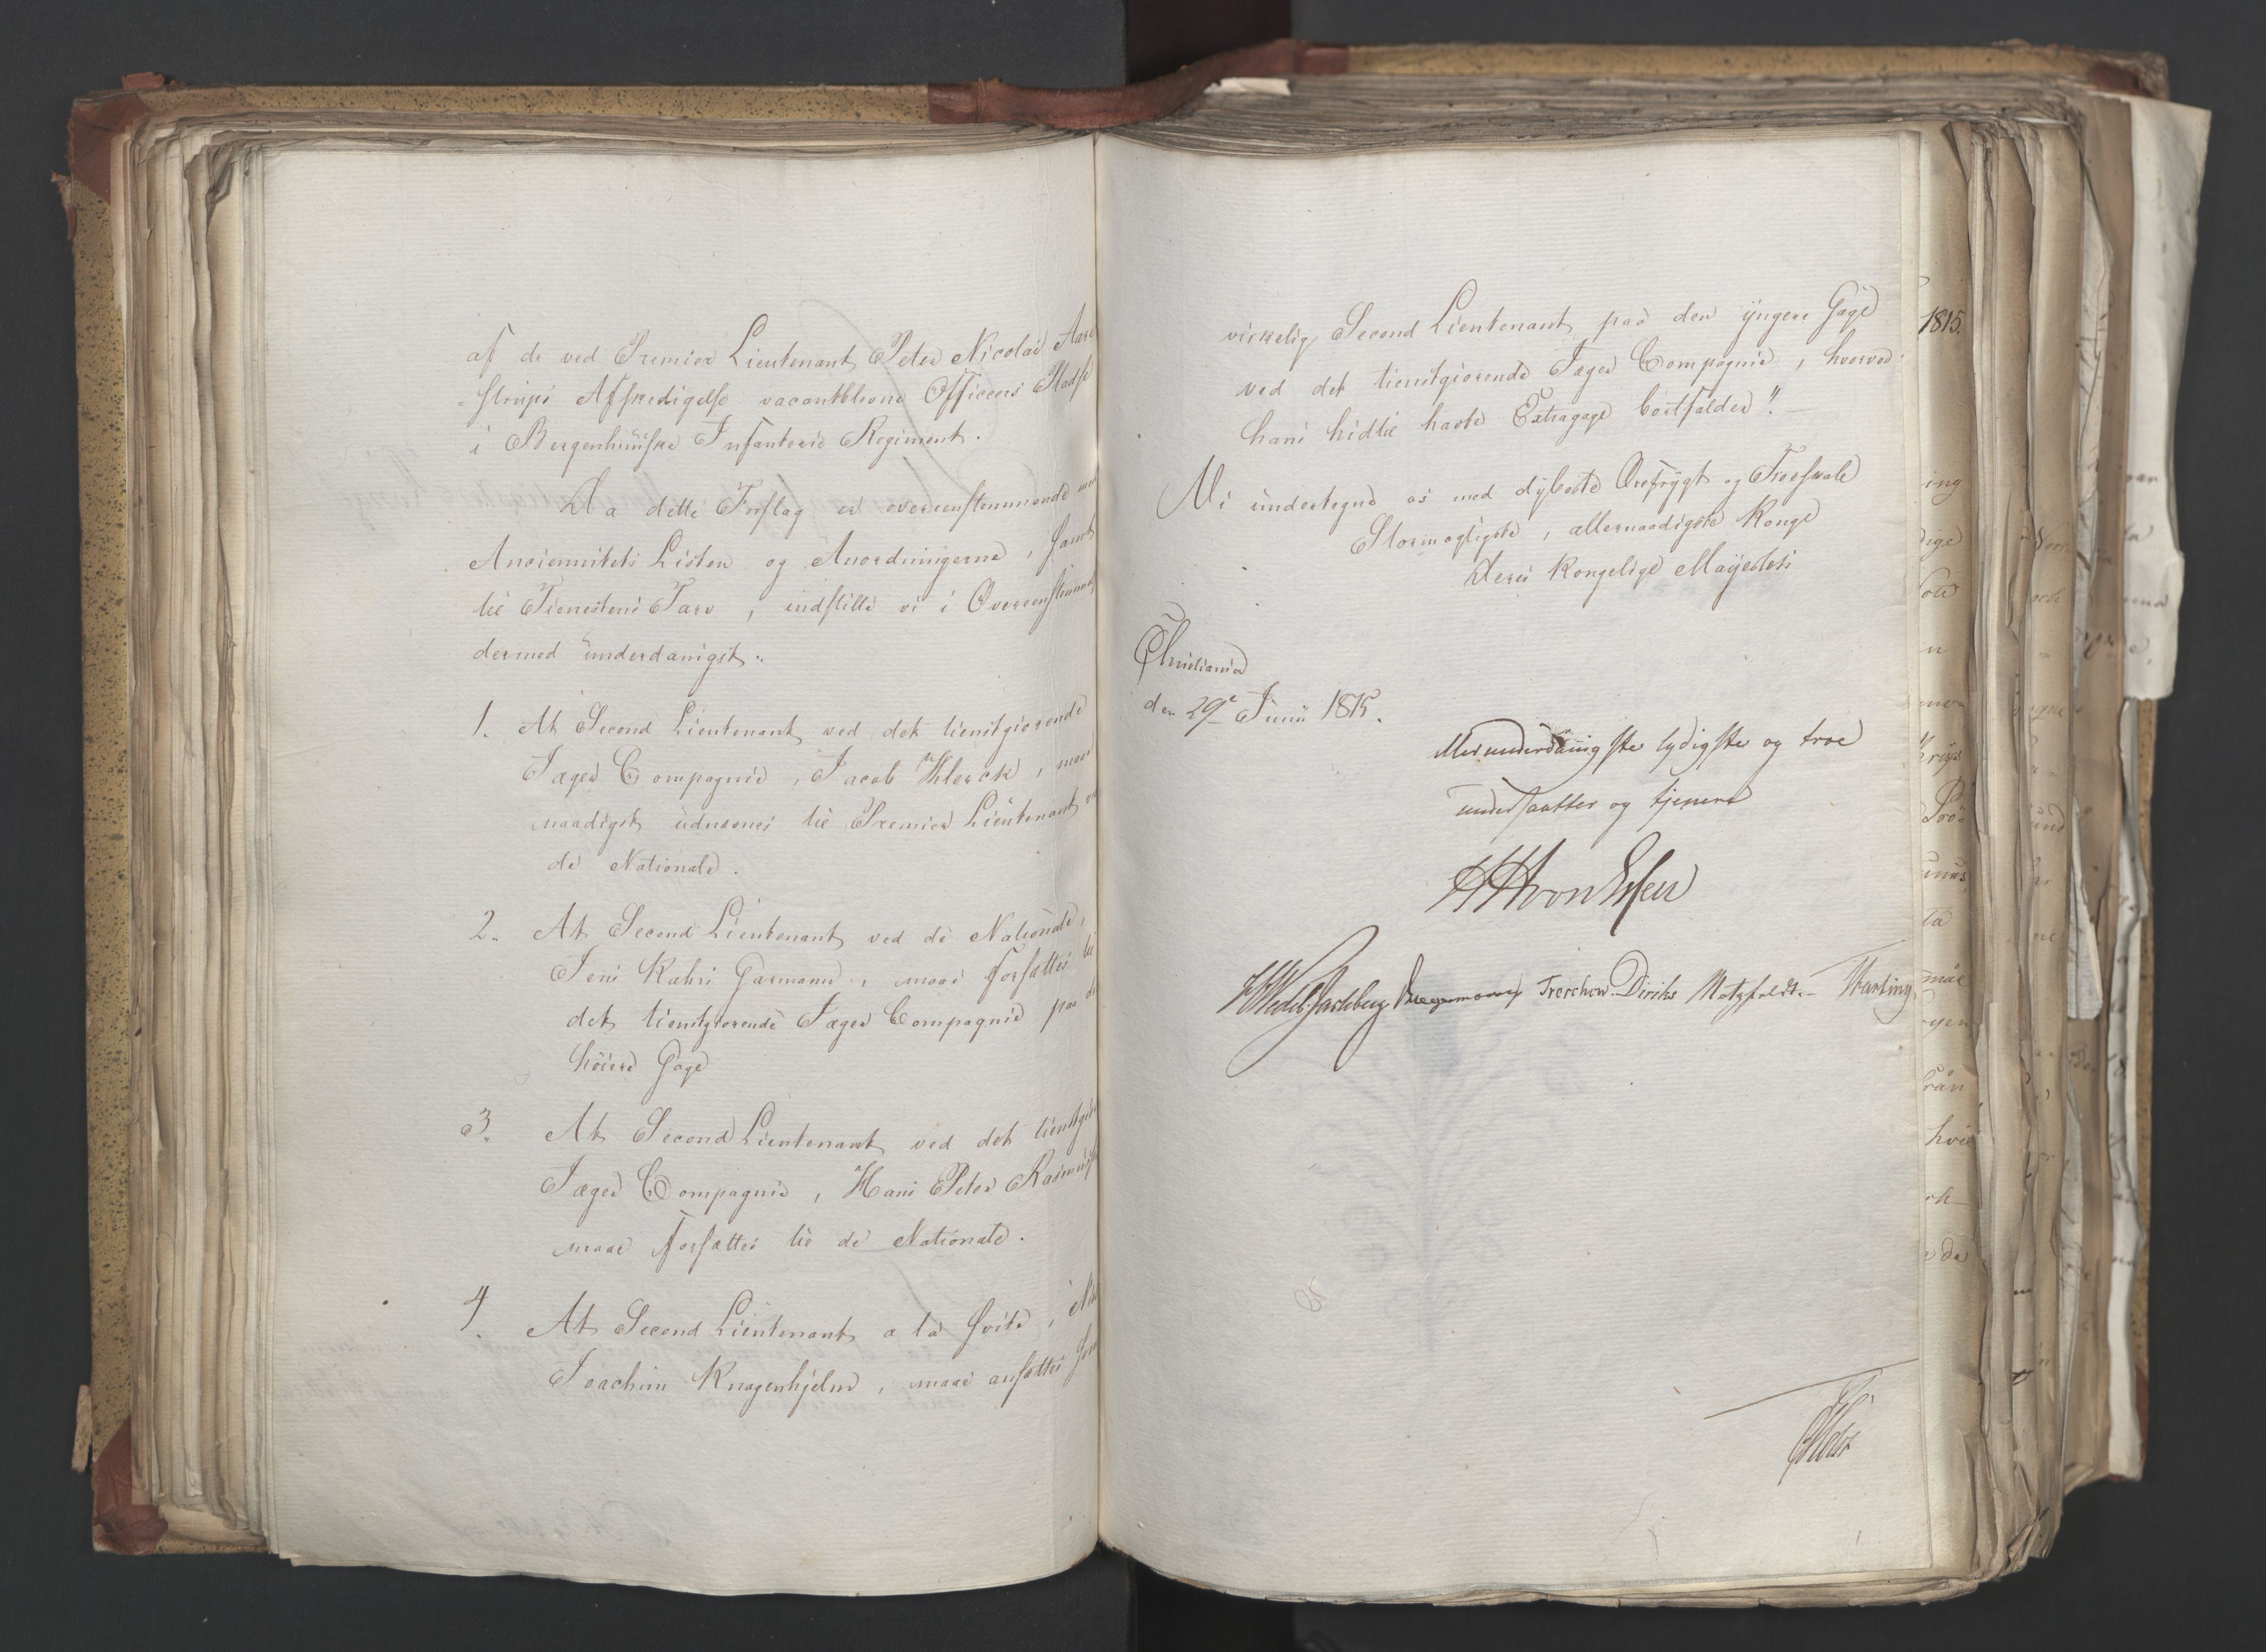 af de ved Premier Lieutenant Peter Nicolai Aare
-strups Afskedigelse vacantblevne Officeers Pladse
i Bergenhuusske Infanterie Regiment.
Da dette Forslag er overeensstemmende med
Anciennitets Listen og Anordningerne, samt
til Tienestens Tarv, indstille vi i Overeenstemmel
dermed underdanigst:
1. At Second Lieutenant ved det tienstgiørende
Jæger Compagnie, Jacob Klerck, maae
naadigst udnævnes til Premier Lieutenant ved
de Nationale.
2. At Second Lieutenant ved de Nationale,
Jens Kahrs Garmann, maae forsættes til
det tienstgiørende Jæger Compagnie paa de
höiere Gage
3. At Second Lieutenant ved det tienstgiø
Jæger Compagnie, Hans Peter Rasmus
maae forsættes til de Nationale.
4. At Second Lieutenant a la Svite,
Joachim Knagenhjelm, maae ansættes som
1815.
virkelig Second Lieutenant paa den yngere Gage
ved det tienstgiörende Jæger Compagnie, hvorved
hans hidtil havte Extragage bortfalder".
Vi undertegne os med dybeste Ærefrygt og Troeskab
Stormægtigste, allernaadigste Konge
Deres Kongelige Majestets
Christiania
den 29e Junii 1815.
Allerunderdanigste lydigste og troe
undersaatter og tjenere
HHvonEssen
HWedel Jarlsberg Treschow. Diriks Motzfeldt.